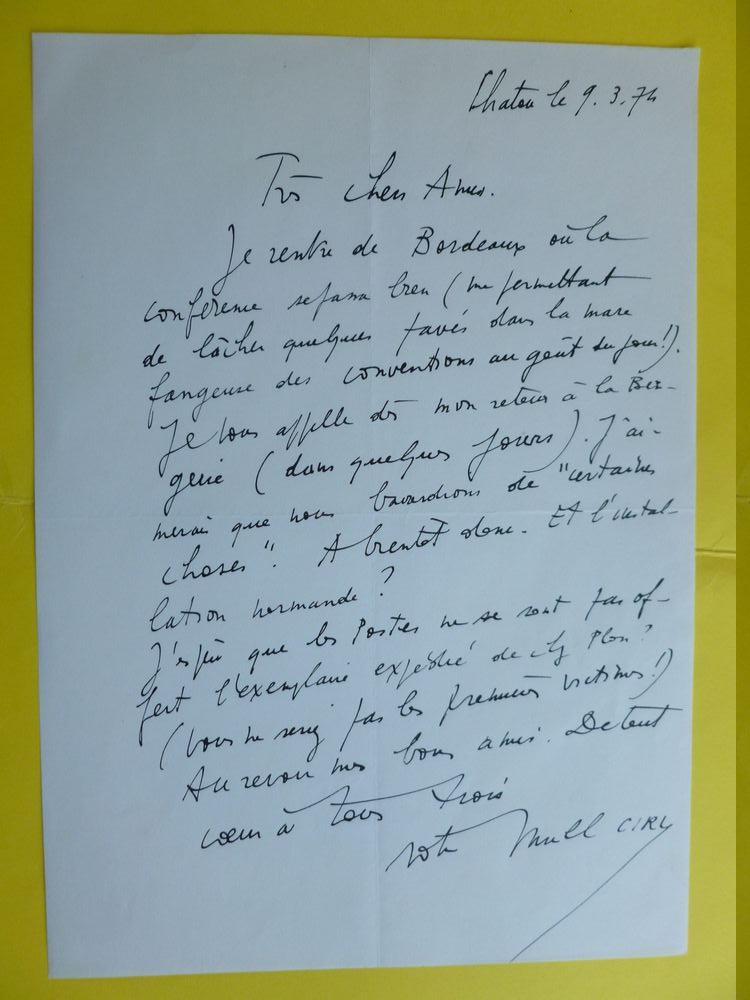 Chatou le 9.3.74
Très chers Amis.
Je rentre de Bordeaux où la
conférence se passa bien (me permettant
de lâcher quelques pavés dans la mare
fangeuse des conventions au goût du jour!).
Je vous appelle dès mon retour à la Ber-
gerie (dans quelques jours). J'ai-
merais que nous bavardions de "certaines
choses". A bientôt donc. Et l'instal-
lation normande ?
J'espère que les Postes ne se sont pas of-
fert l'exemplaire expédié de chez Plon ?
(vous ne seriez pas les premières victimes!)
Au revoir mes bons amis. De tout
coeur à tous trois
votre Michel CIRY